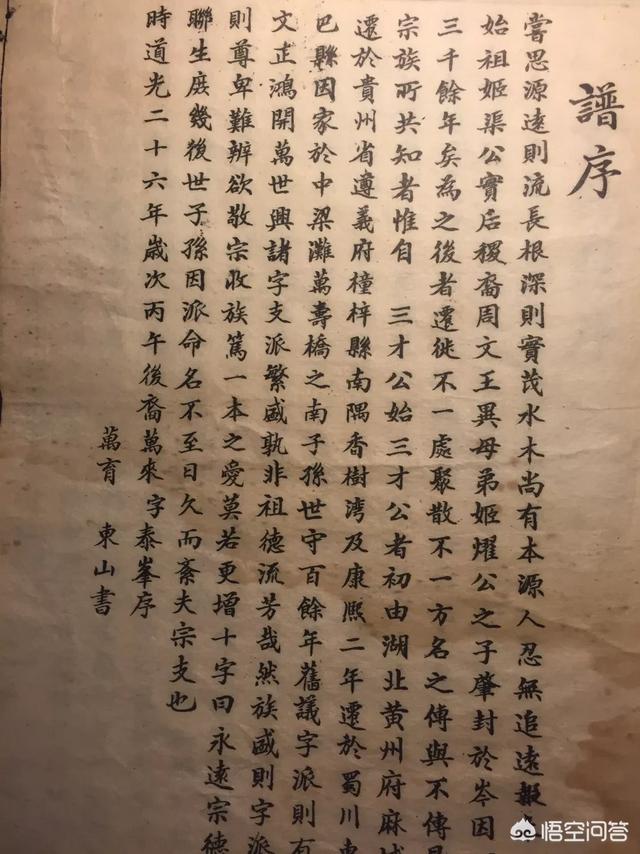 譜序
嘗思源遠則流長根深則實茂水木尚有本源人忍無追遠報
始祖姬渠公實后稷裔周文王異母弟姬燿公之子肇封於岑因
三千餘年矣為之後者遷徙不一處聚散不一方名之傳與不傳
宗族所共知者惟自 三才公始三才公者初由湖北黄州府麻城
遷於貴州省遵義府橦梓縣南隅香樹湾及康熙二年遷於蜀川東
巴縣因家於中梁灘萬壽橋之南子孫世守百餘年舊議字派則有
文正鴻開萬世興諸字支派繁盛孰非祖德流芳哉然族盛則字派
則尊卑難辨欲敬宗收族篤一本之愛莫若更增十字曰永遠宗德
聯生庶幾後世子孫因派命名不至日久而紊夫宗支也
時道光二十六年歲次丙午後裔萬來字泰峯序
萬育 東山書
悟空问答